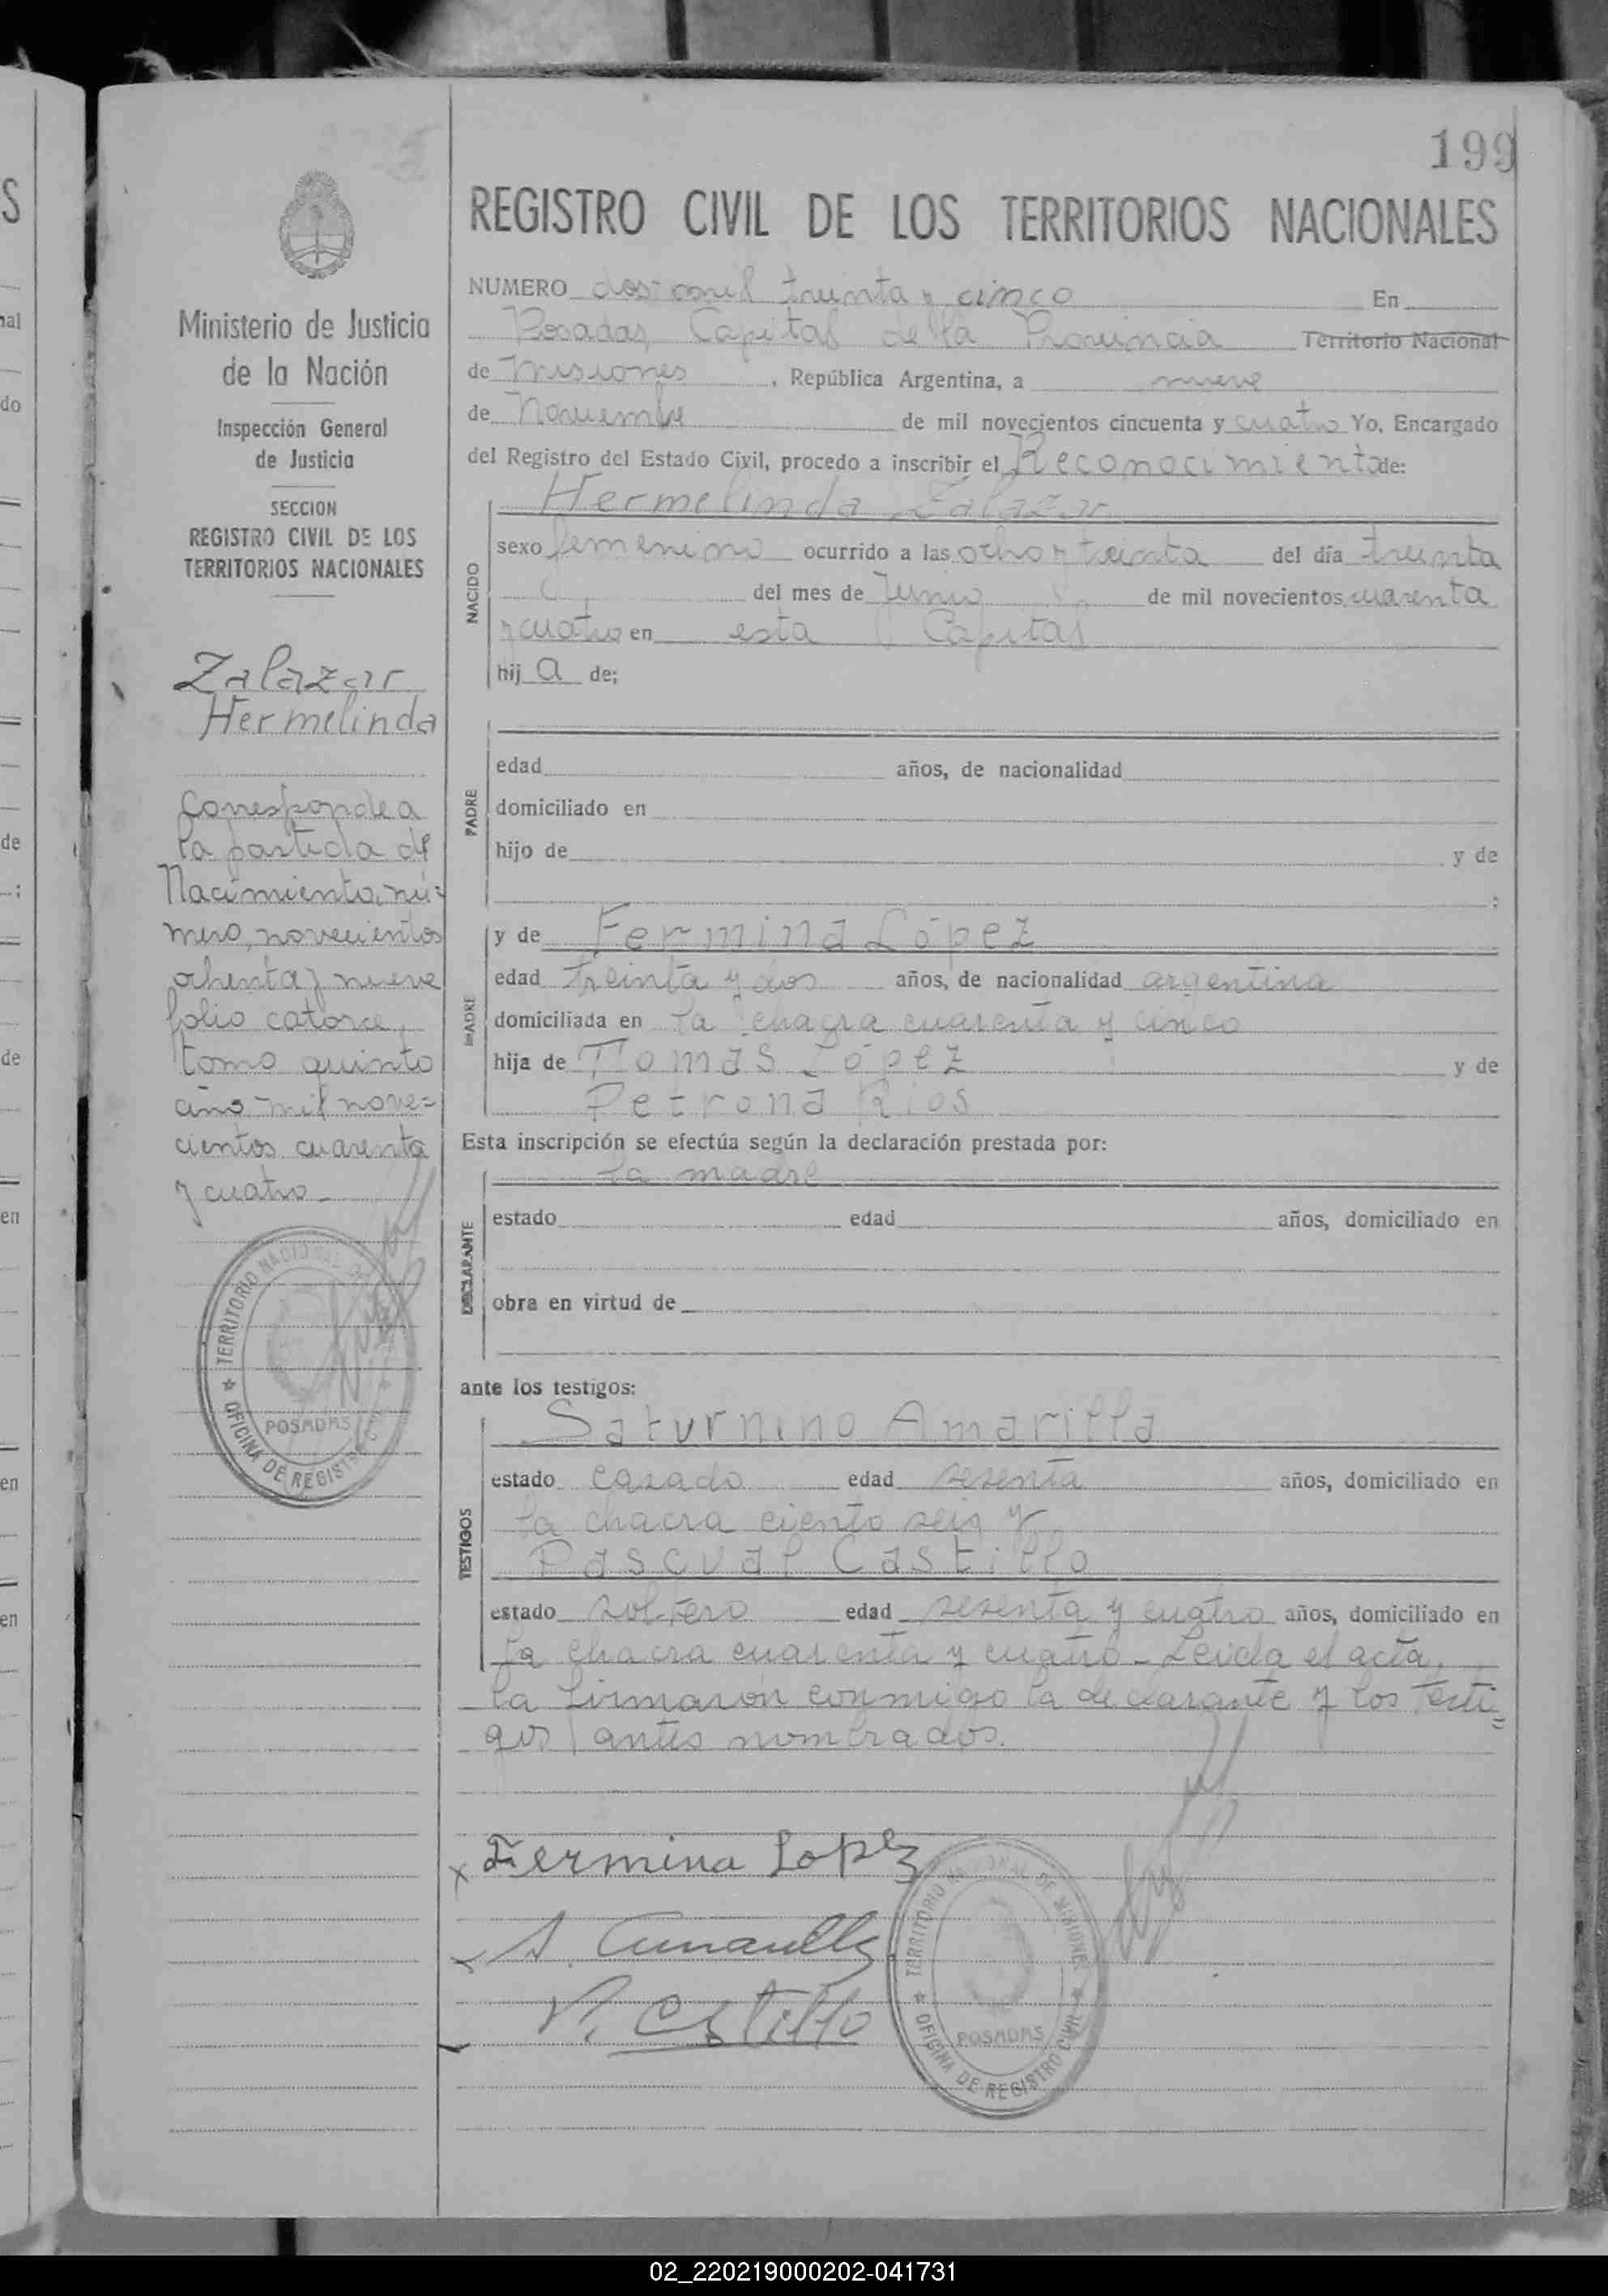 199
REGISTRO CIVIL DE LOS TERRITORIOS NACIONALES
Ministerio de Justicia
de la Nación
Inspección General
de Justicia
SECCION
REGISTRO CIVIL DE LOS
TERRITORIOS NACIONALES
Zalazar
Hermelinda
Corresponde a
la partida de
Nacimiento, nú=
mero, novecientos
ochenta y nueve
folio catorce,
tomo quinto
año mil nove=
cientos cuarenta
y cuatro.-
TERRITORIO NACIONAL DE
OFICINA DE REGISTRO
POSADAS
NUMERO dos mil treinta y cinco En
Posadas, Capital de la Provincia Territorio Nacional
de Misiones, República Argentina, a nueve
de Noviembre de mil novecientos cincuenta y cuatro Yo, Encargado
del Registro del Estado Civil, procedo a inscribir el Reconocimiento de:
NACIDO
Hermelinda Zalazar
sexo femenino ocurrido a las ocho y treinta del día treinta
del mes de Junio de mil novecientos cuarenta
y cuatro en esta Capital
hij a de;
PADRE
edad años, de nacionalidad
domiciliado en
hijo de y de
;
MADRE
y de Fermina López
edad treinta y dos años, de nacionalidad argentina
domiciliada en la chacra cuarenta y cinco
hija de Tomás López y de
Petrona Rios
Esta inscripción se efectúa según la declaración prestada por:
DECLARANTE
la madre
estado edad años, domiciliado en
obra en virtud de
ante los testigos:
TESTIGOS
Saturnino Amarilla
estado casado edad sesenta años, domiciliado en
la chacra ciento seis y
Pascual Castillo
estado soltero edad sesenta y cuatro años, domiciliado en
la chacra cuarenta y cuatro.- Leida el acta,
la firmaron conmigo la declarante y los testi=
gos antes nombrados.
x Fermina Lopez
A. Amarilla
P. Castillo
TERRITORIO NACIONAL DE MISIONES
OFICINA DE REGISTRO CIVIL
POSADAS
02_220219000202-041731